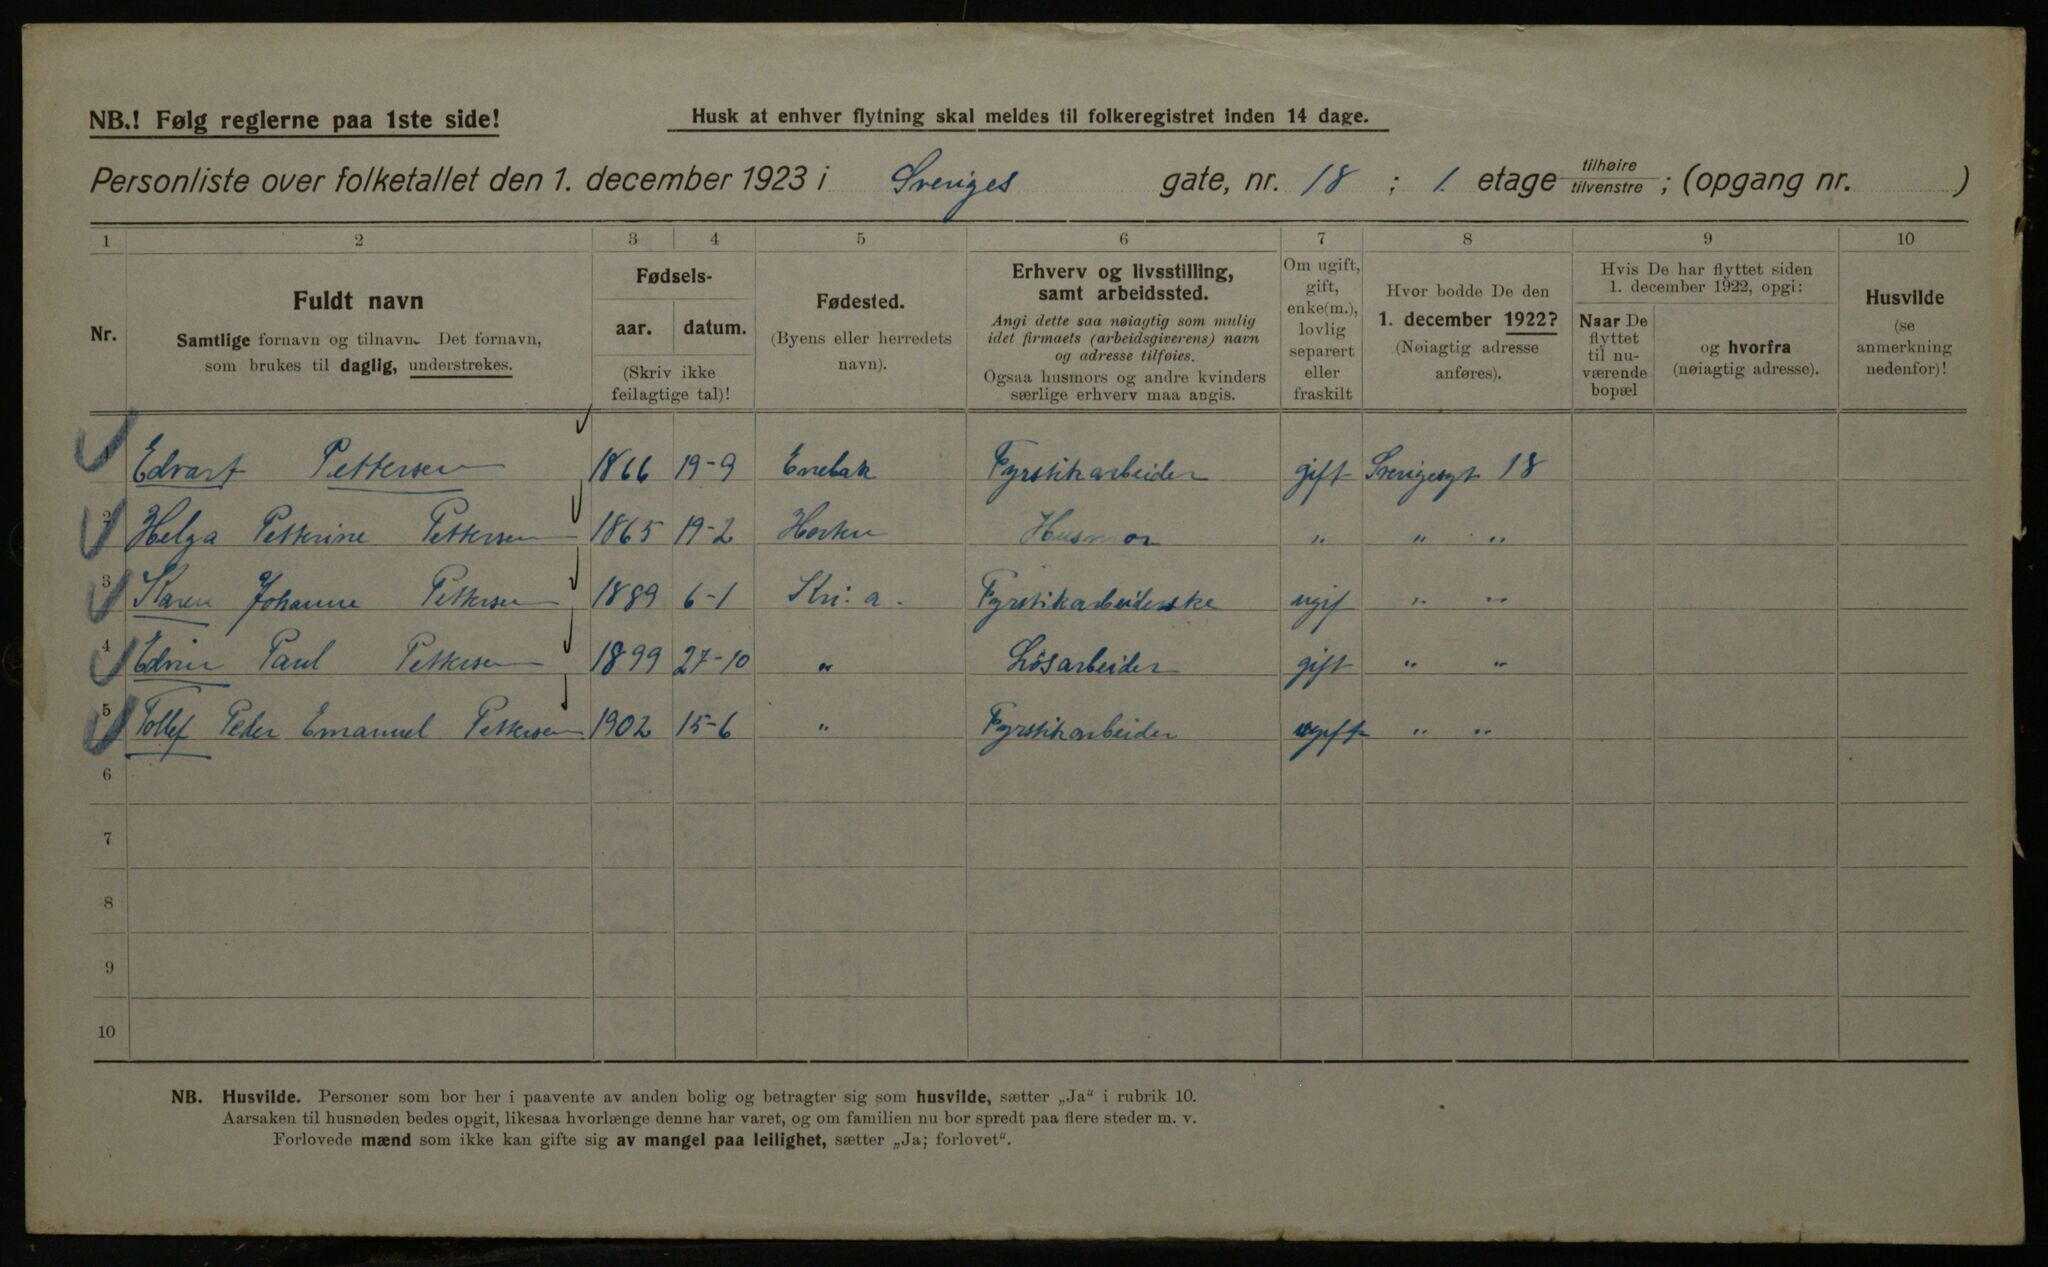 NB.! Følg reglerne paa 1ste side!
Husk at enhver flytning skal meldes til folkeregistret inden 14 dage.
Personliste over folketallet den 1. december 1923 i Sveriges gate, nr. 18 ; 1. etage tilhøire tilvenstre ; (opgang nr. )
1 2 3 4 5 6 7 8 9 10
Nr.
Fuldt navn
Samtlige fornavn og tilnavn. Det fornavn,
som brukes til daglig, understrekes.
Fødsels-
aar. datum.
(Skriv ikke
feilagtige tal)!
Fødested.
(Byens eller herredets
navn).
Erhverv og livsstilling,
samt arbeidssted.
Angi dette saa nøiagtig som mulig
idet firmaets (arbeidsgiverens) navn
og adresse tilføies.
Ogsaa husmors og andre kvinders
særlige erhverv maa angis.
Om ugift,
gift,
enke(m.),
lovlig
separert
eller
fraskilt
Hvor bodde De den
1. december 1922?
(Nøiagtig adresse
anføres).
Hvis De har flyttet siden
1. december 1922, opgi:
Naar De
flyttet
til nu-
værende
bopæl
og hvorfra
(nøiagtig adresse).
Husvilde
(se
anmerkning
nedenfor)!
Edvart Pettersen 1866 19-9 Enebak Fyrstikarbeider gift Sverigesgt 18
2 Helga Petterine Pettersen 1865 19-2 Horten Husmor " " "
3 Karen Johanne Pettersen 1889 6-1 Kri: a. Fyrstikarbeiderske ugif " "
4 Edvin Paul Pettersen 1899 27-10 " Løsarbeider gift " "
5 Tollef Peder Emanuel Pettersen 1902 15-6 " Fyrstikarbeider ugift " "
6
7
8
9
10
NB. Husvilde. Personer som bor her i paavente av anden bolig og betragter sig som husvilde, sætter „Ja“ i rubrik 10.
Aarsaken til husnøden bedes opgit, likesaa hvorlænge denne har varet, og om familien nu bor spredt paa flere steder m. v.
Forlovede mænd som ikke kan gifte sig av mangel paa leilighet, sætter „Ja; forlovet“.